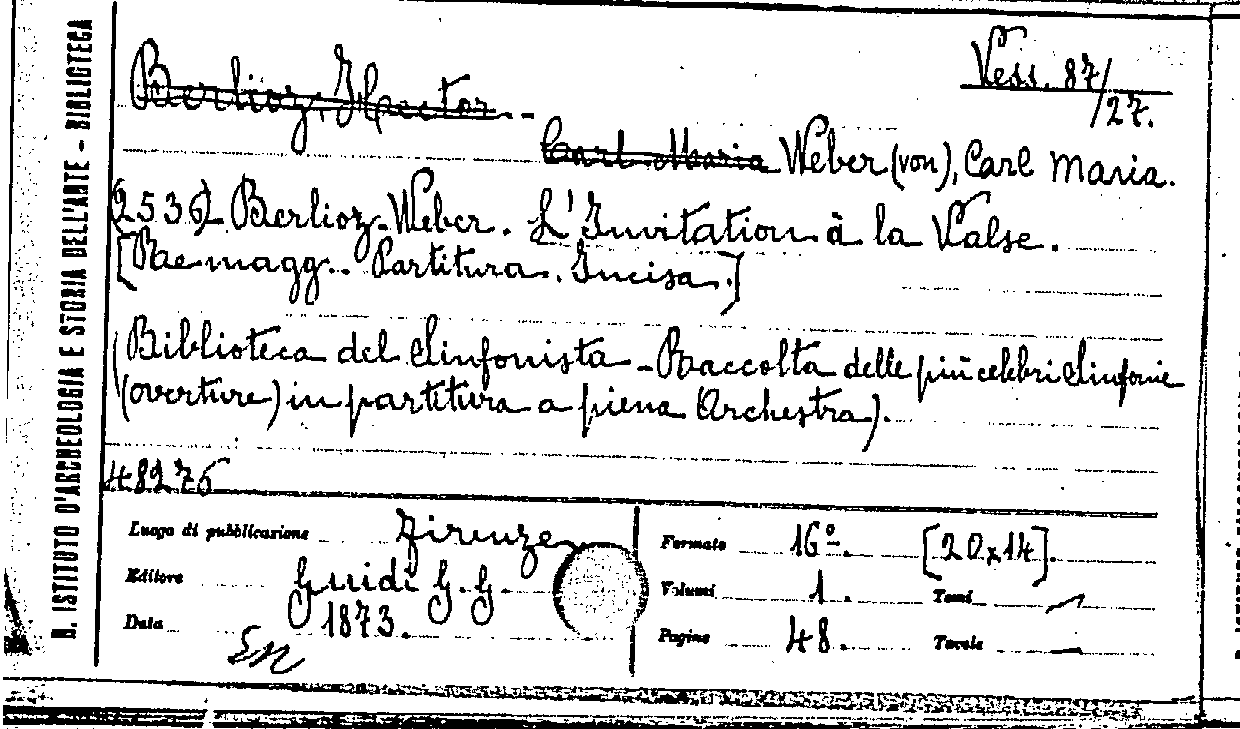 R. ISTITUTO D'ARCHEOLOGIA E STORIA DELL'ARTE - BIBLIOTECA
Berlioz, Hector. -
Vess. 87/27.
Carl Maria Weber (von), Carl Maria.
(2536) Berlioz-Weber. L'Invitation à la Valse.
[Re magg. Partitura. Incisa.]
(Biblioteca del Sinfonista - Raccolta delle più celebri Sinfonie
(overture) in partitura a piena Orchestra).
48276
Luogo di pubblicazione Firenze
Editore Guidi G. G.
Data 1873.
Formato 16º. [20x14].
Volumi 1. Tomi —
Pagine 48. Tavole —